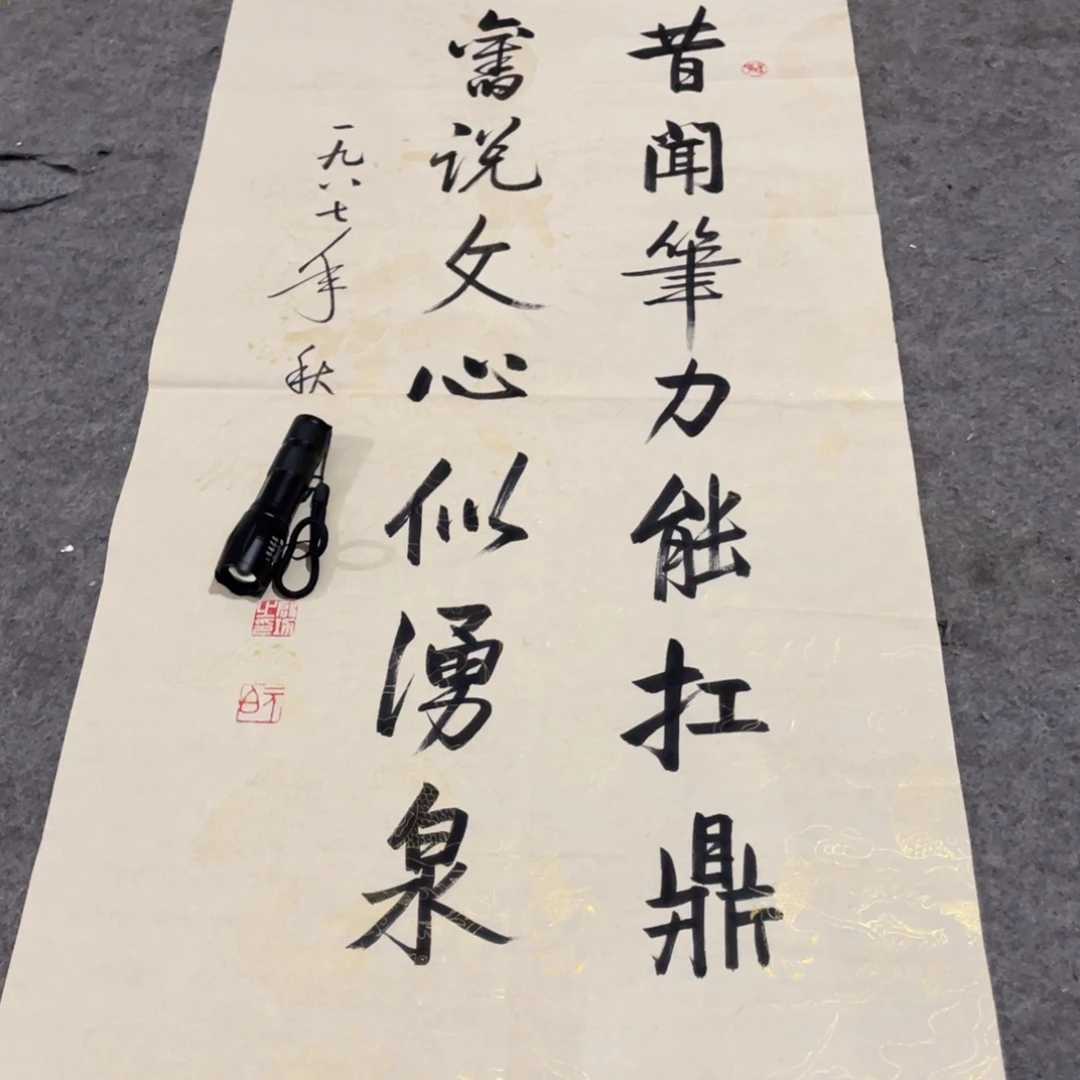 昔闻筆力能扛鼎
旧说文心似湧泉
一九八七年秋